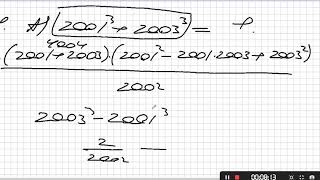 A) 2001³ + 2003³ =
4004
(2001+2003)·(2001² - 2001·2003 + 2003²)
2002
2003³ - 2001³
2
2002
00:08:13